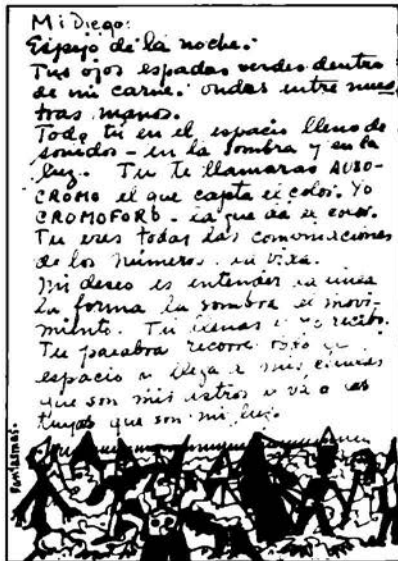 Mi Diego:
Espejo de la noche.
Tus ojos espadas verdes dentro
de mi carne. ondas entre nues
tras manos.
Todo tú en el espacio lleno de
sonidos - en la sombra y en la
luz. Tu te llamaras AUXO-
CROMO el que capta el color. Yo
CROMOFORO - la que da el color.
Tu eres todas las combinaciones
de los números. la vida.
Mi deseo es entender la linea
la forma la sombra el movi-
miento. Tu llenas y yo recibo.
Tu palabra recorre todo el
espacio y llega a mis células
que son mis astros y va a las
tuyas que son mi luz.
Fantasmas.